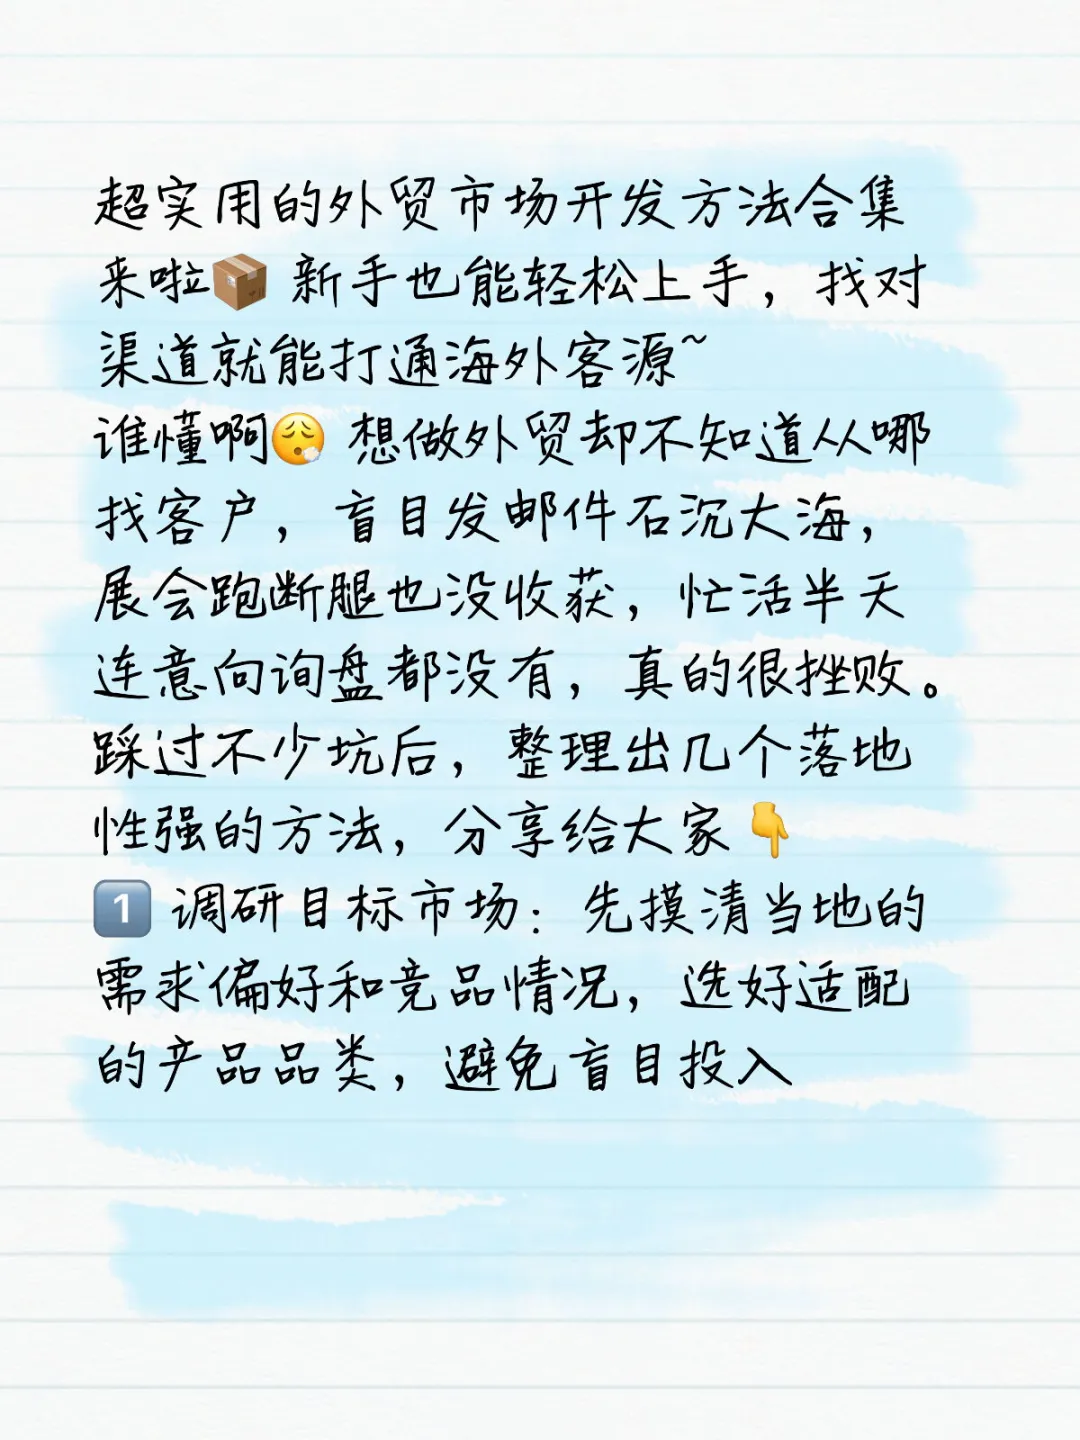 超实用的外贸市场开发方法合集
来啦📦 新手也能轻松上手，找对
渠道就能打通海外客源~
谁懂啊😮‍💨 想做外贸却不知道从哪
找客户，盲目发邮件石沉大海，
展会跑断腿也没收获，忙活半天
连意向询盘都没有，真的很挫败。
踩过不少坑后，整理出几个落地
性强的方法，分享给大家👇
1️⃣ 调研目标市场：先摸清当地的
需求偏好和竞品情况，选好适配
的产品品类，避免盲目投入